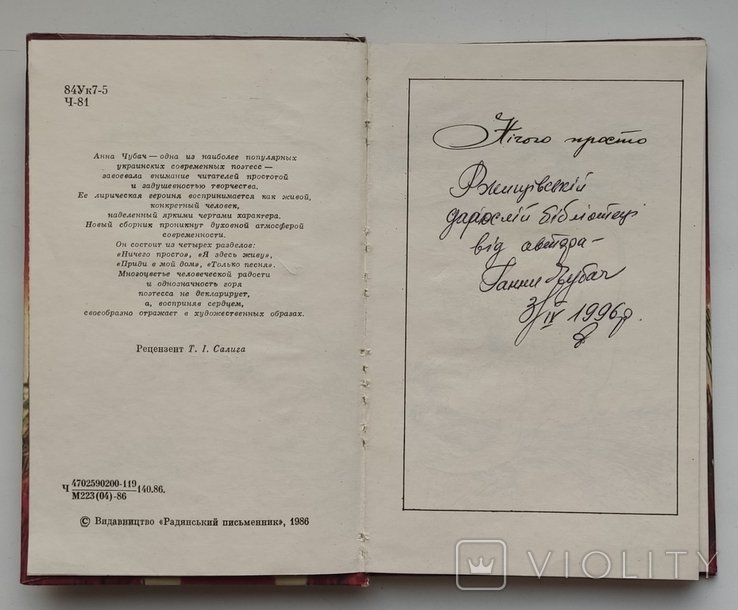 84Ук7-5
Ч-81
Анна Чубач — одна из наиболее популярных
украинских современных поэтесс —
завоевала внимание читателей простотой
и задушевностью творчества.
Ее лирическая героиня воспринимается как живой,
конкретный человек,
наделенный яркими чертами характера.
Новый сборник проникнут духовной атмосферой
современности.
Он состоит из четырех разделов:
«Ничего просто», «Я здесь живу»,
«Приди в мой дом», «Только песня».
Многоцветье человеческой радости
и однозначность горя
поэтесса не декларирует,
а, восприняв сердцем,
своеобразно отражает в художественных образах.
Рецензент Т. І. Салига
Ч 4702590200-119
М223(04)-86 140.86.
© Видавництво «Радянський письменник», 1986
Нічого просто
Ржищівській
дорослій бібліотеці
від автора -
Ганни Чубач
3/IV 1996р.
VIOLITY